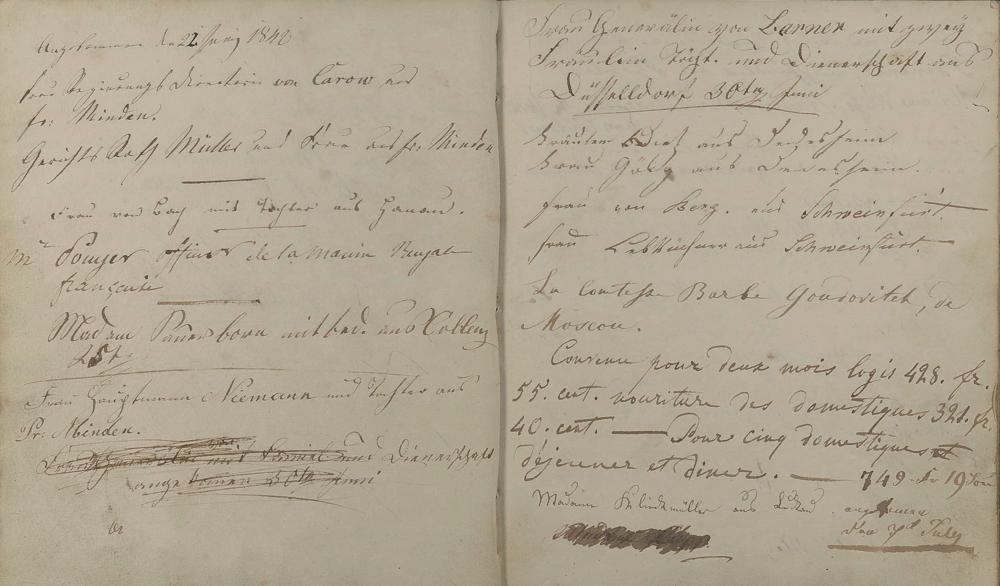 Angekommen den 22 Juny 184
Frau Regierungs Directorin von Carow aus
Pr: Minden.
Gerichts Rath Müller und Frau aus Pr: Minden
Frau von Bach mit Tochter aus Hanau.
Mr Pouyer officier de la marine Royale
française
Madam Pauersborn mit bed. aus Coblenz
25t
Frau Hauptmann Niemann und Tochter aus
Pr: Minden.
mit Familie und Dienerschaft
angekomen 30t Juni
Frau Generälin von Larner mit zwey
Fräulein Töcht. und Dienerschaft aus
Düsselldorf 30t Juni
Fräulein aus Dedesheim
Frau Göltz aus Dedesheim.
Frau von Berg. aus Schweinfürt.
Frau aus Schweinfürt.
La comtesse Barbe Goudovitch, de
Moscou.
Convenu pour deux mois logis 428. fr.
55. cent. nouriture des domestiques 321. fr.
40. cent. — Pour cinq domestiques et
déjeuner et diner. — 749 fr 19 sou
Madame Klinkmüller aus Luckau. angekomen
den 7t July